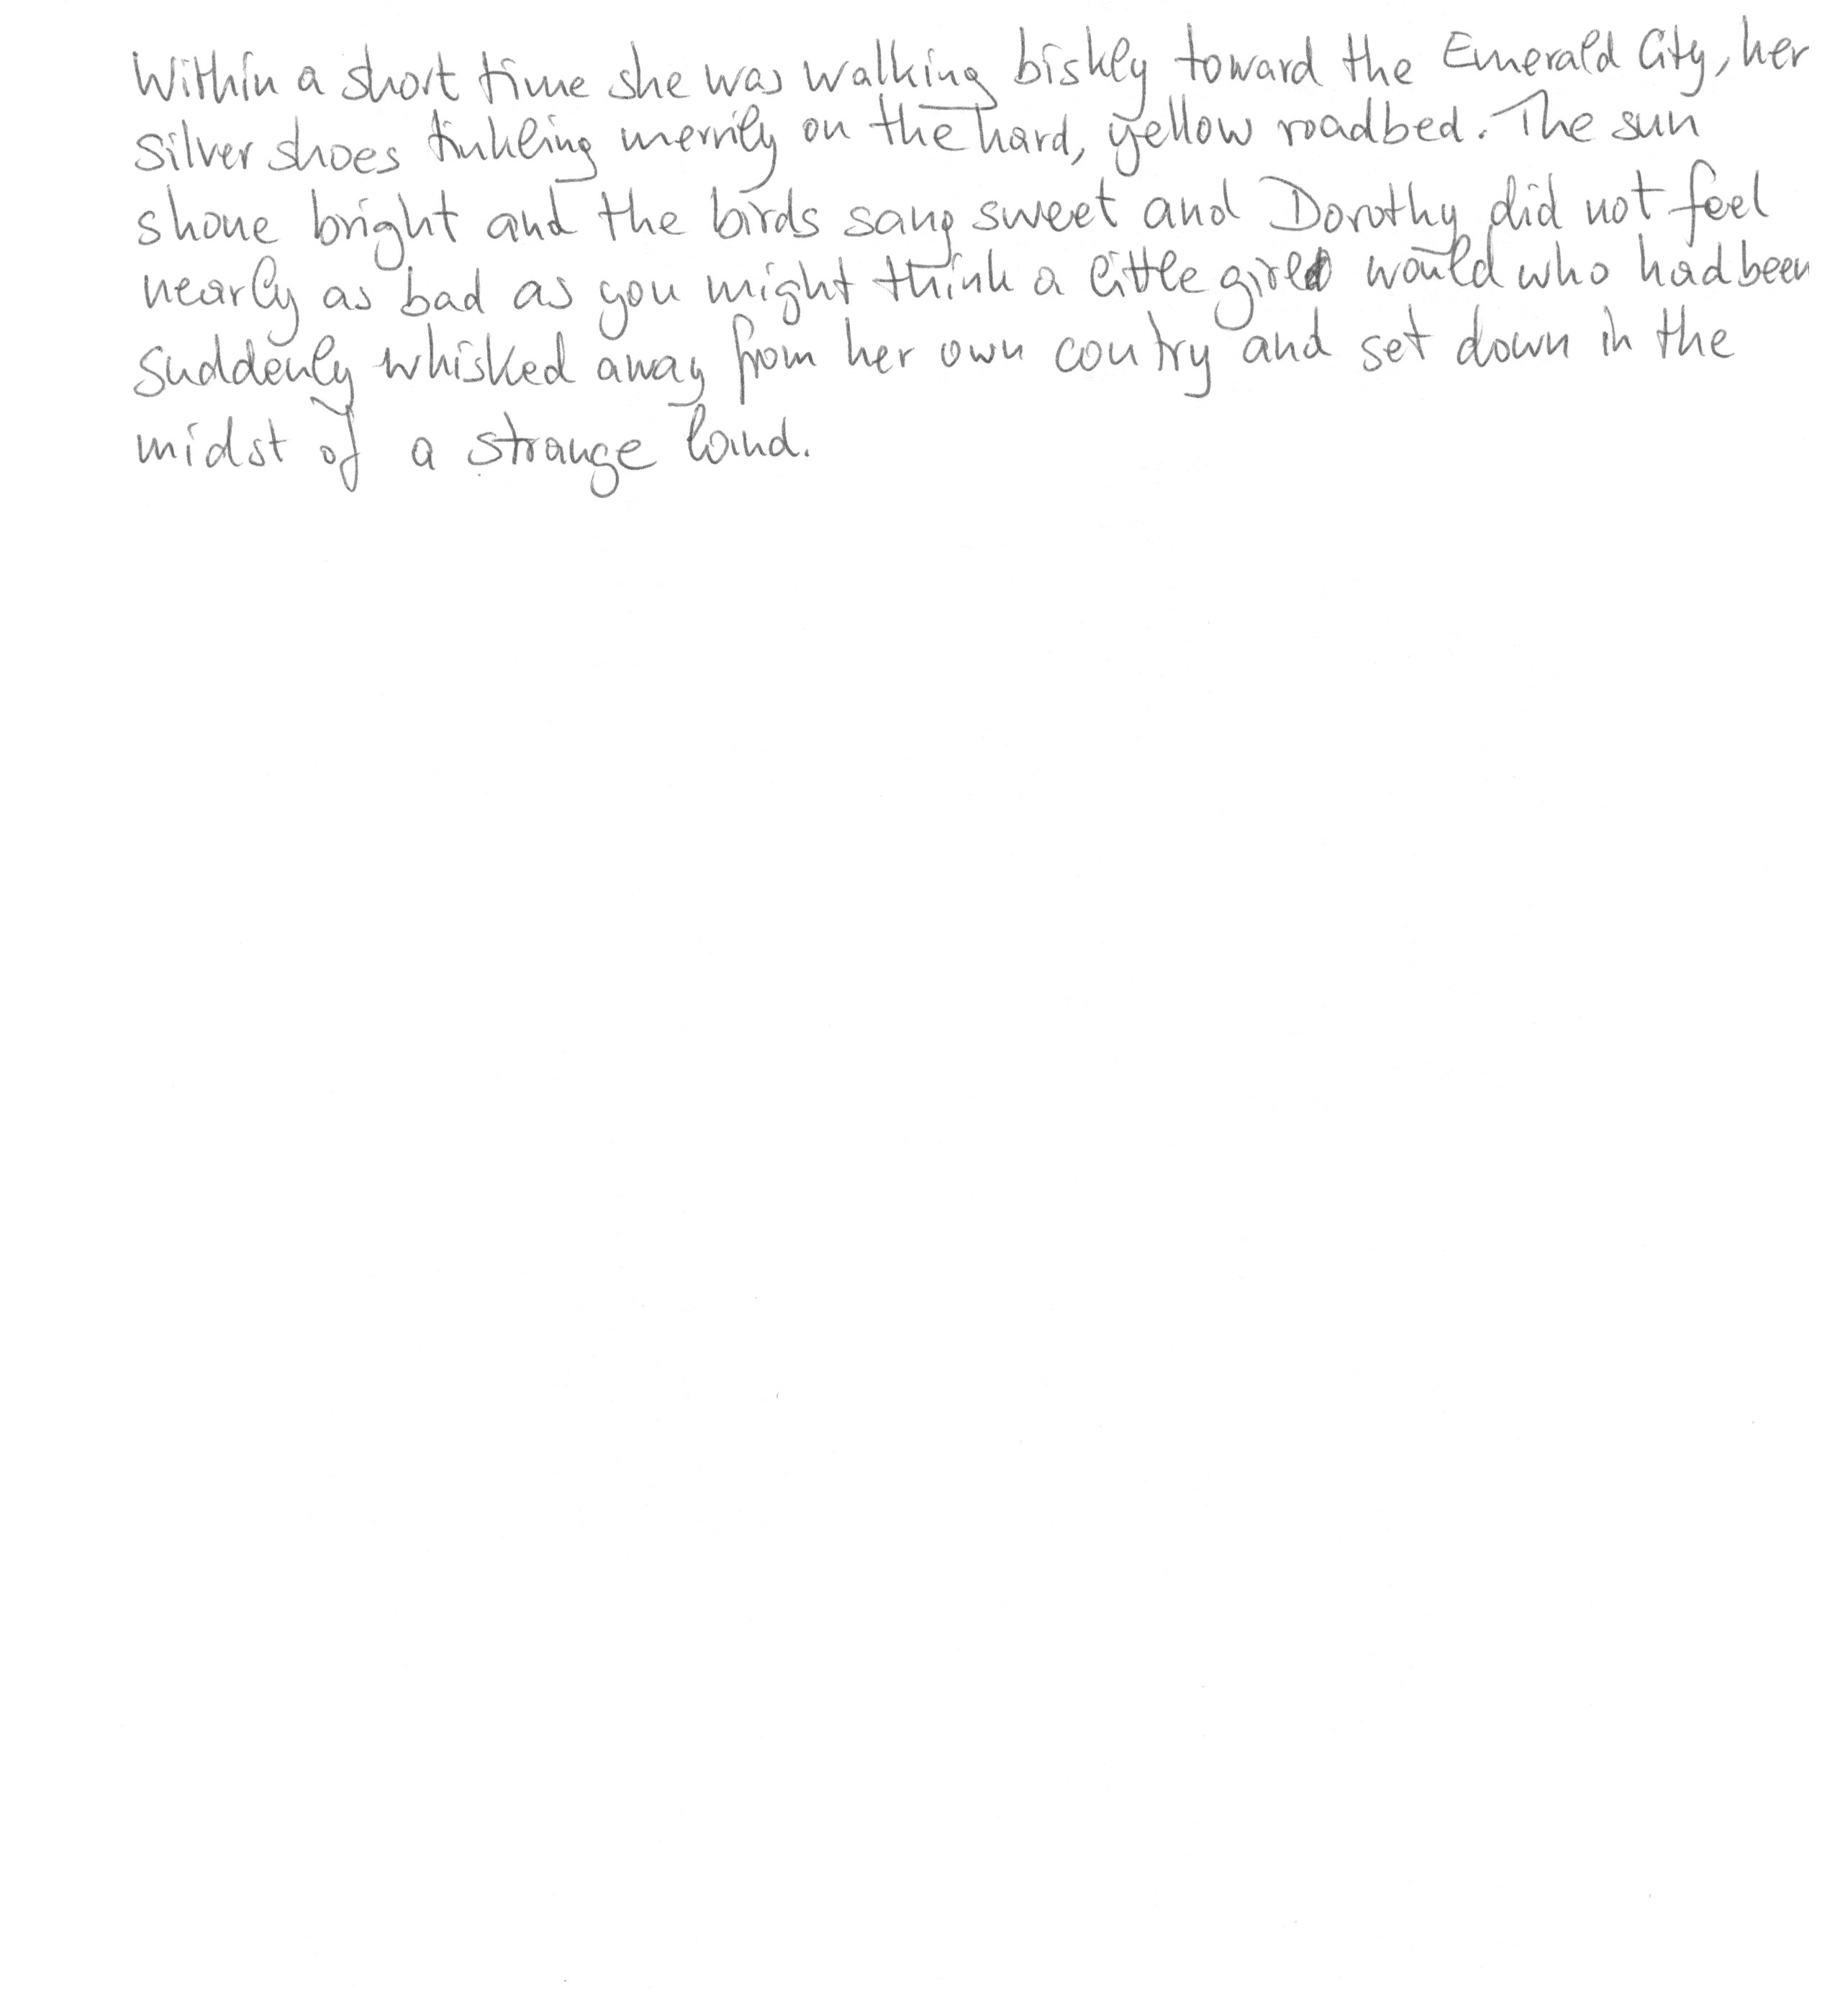 Within a short time she was walking biskly toward the Emerald City, her
silver shoes tinkling merrily on the hard, yellow roadbed. The sun
shone bright and the birds sang sweet and Dorothy did not feel
nearly as bad as you might think a little girl would who had been
suddenly whisked away from her own coutry and set down in the
midst of a strange land.